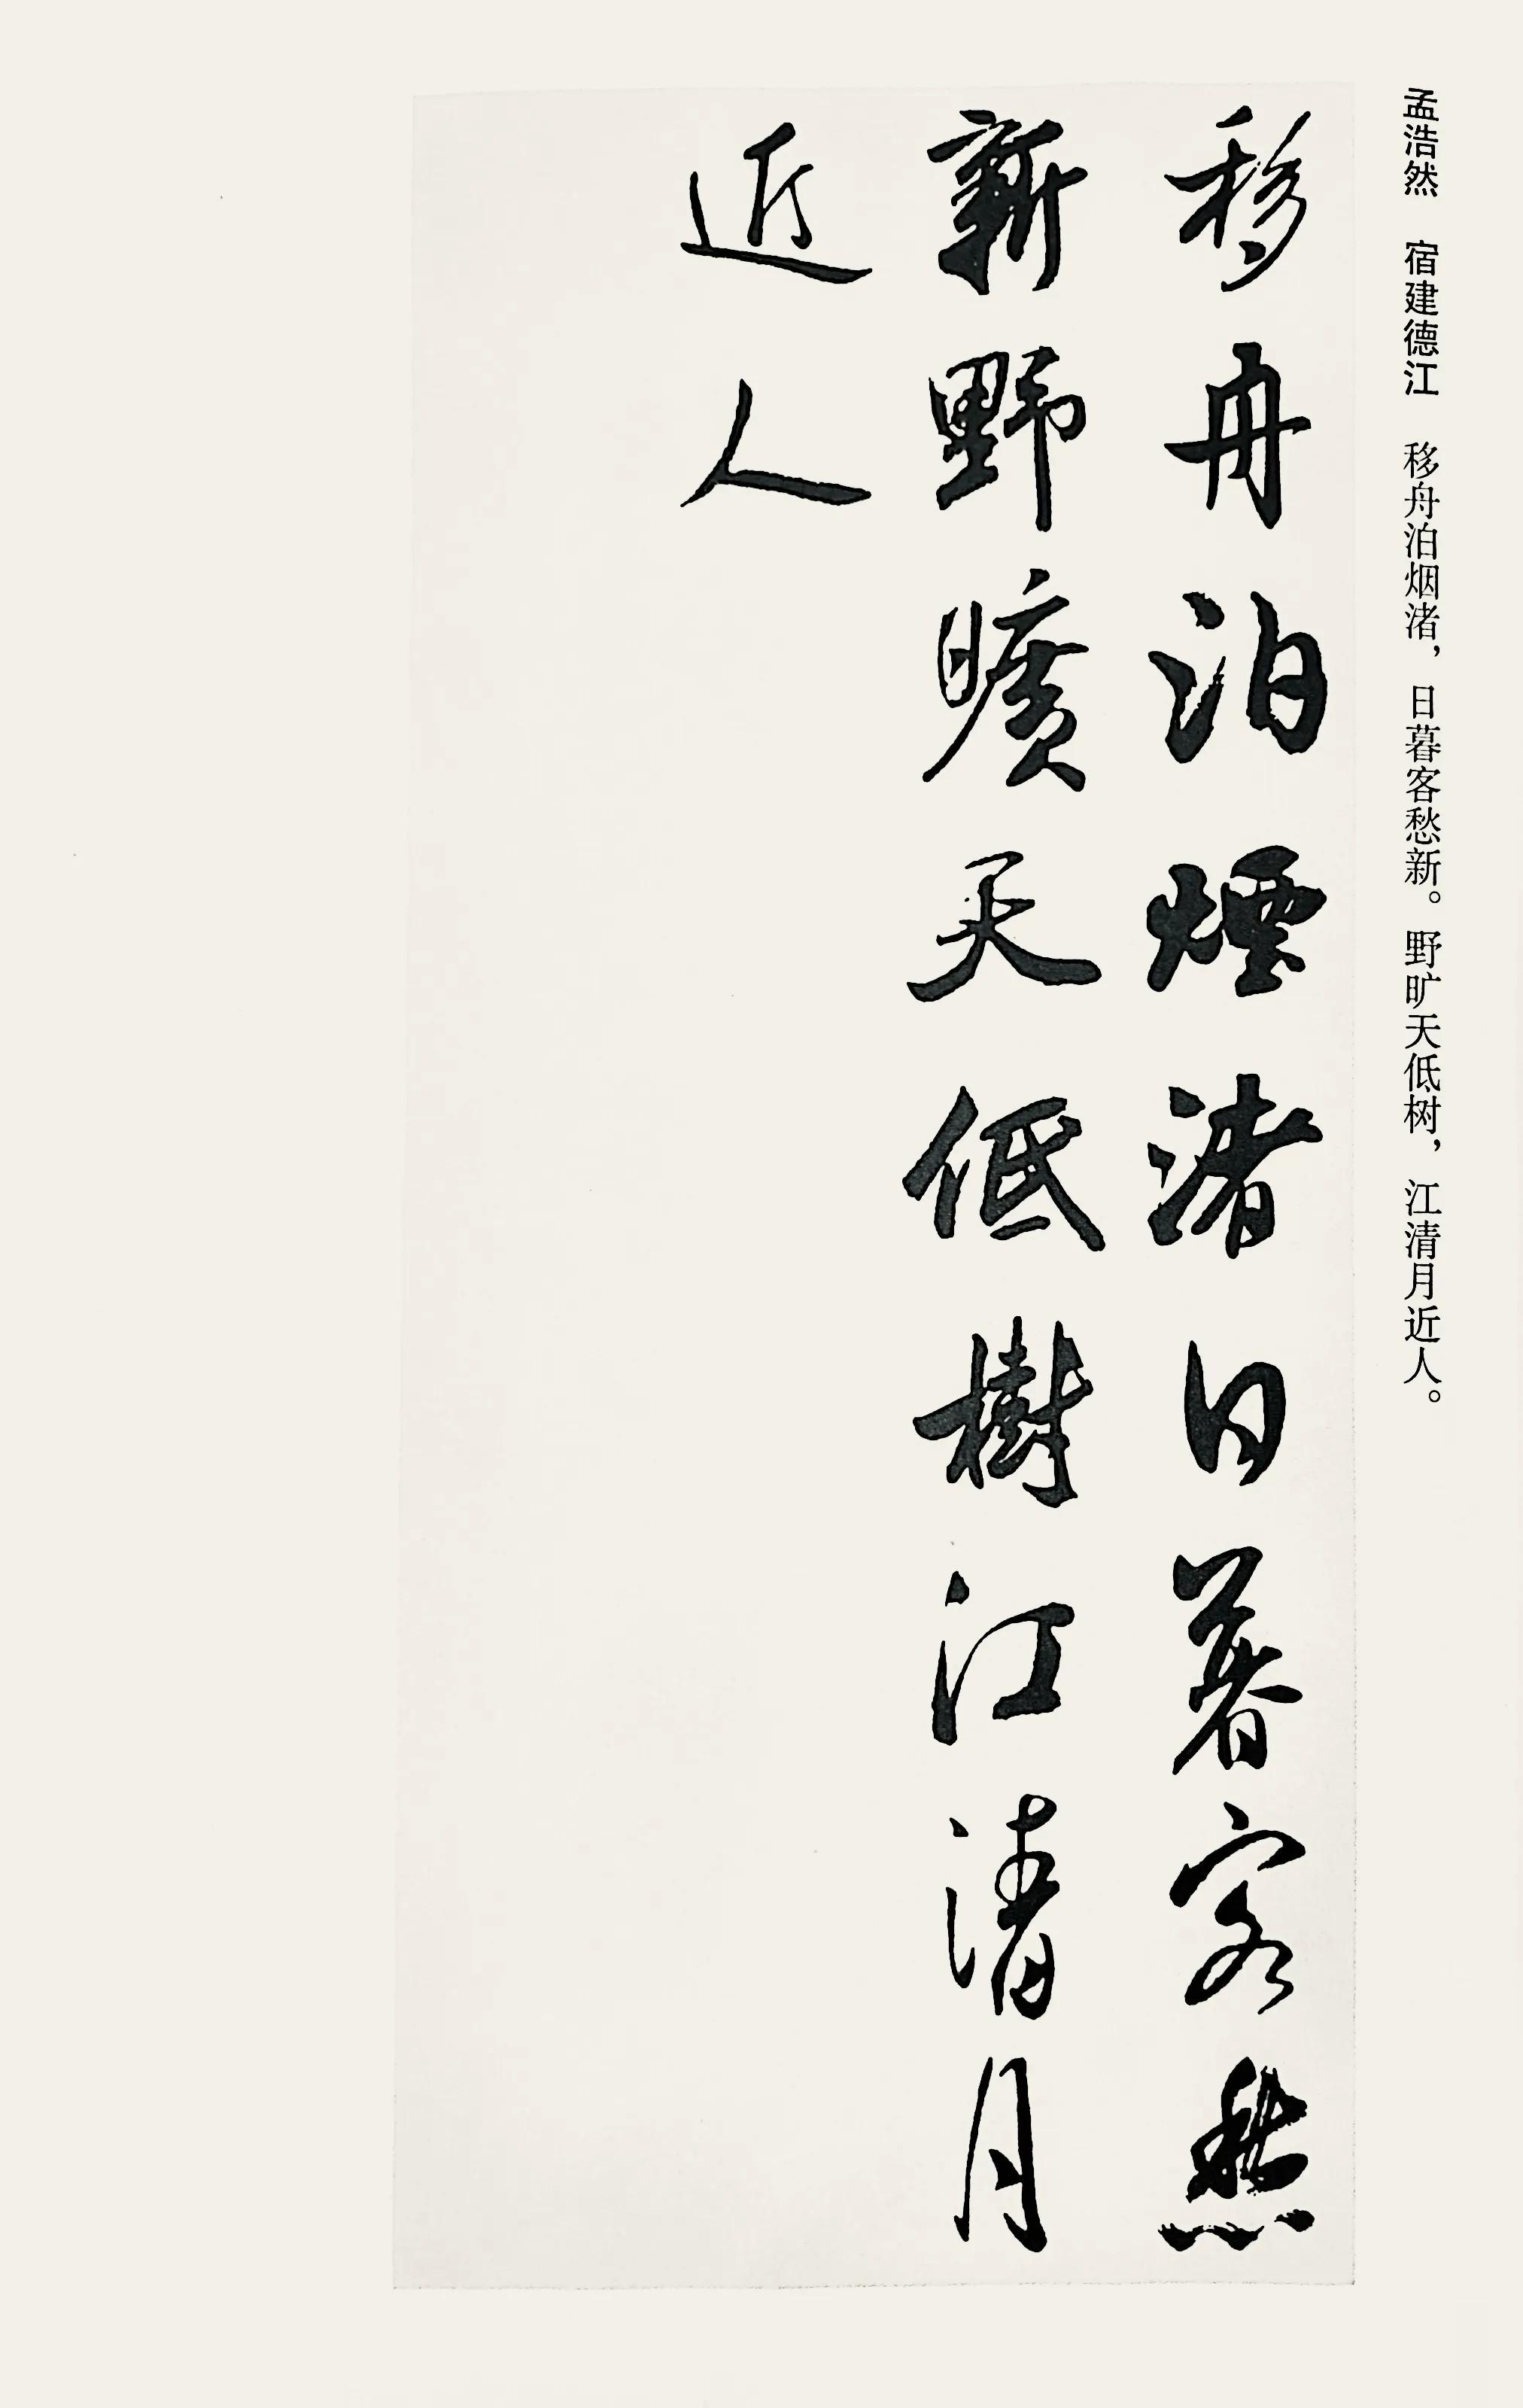 孟浩然　宿建德江　移舟泊烟渚，日暮客愁新。野旷天低树，江清月近人。
移舟泊煙渚日暮客愁
新野曠天低樹江清月
近人